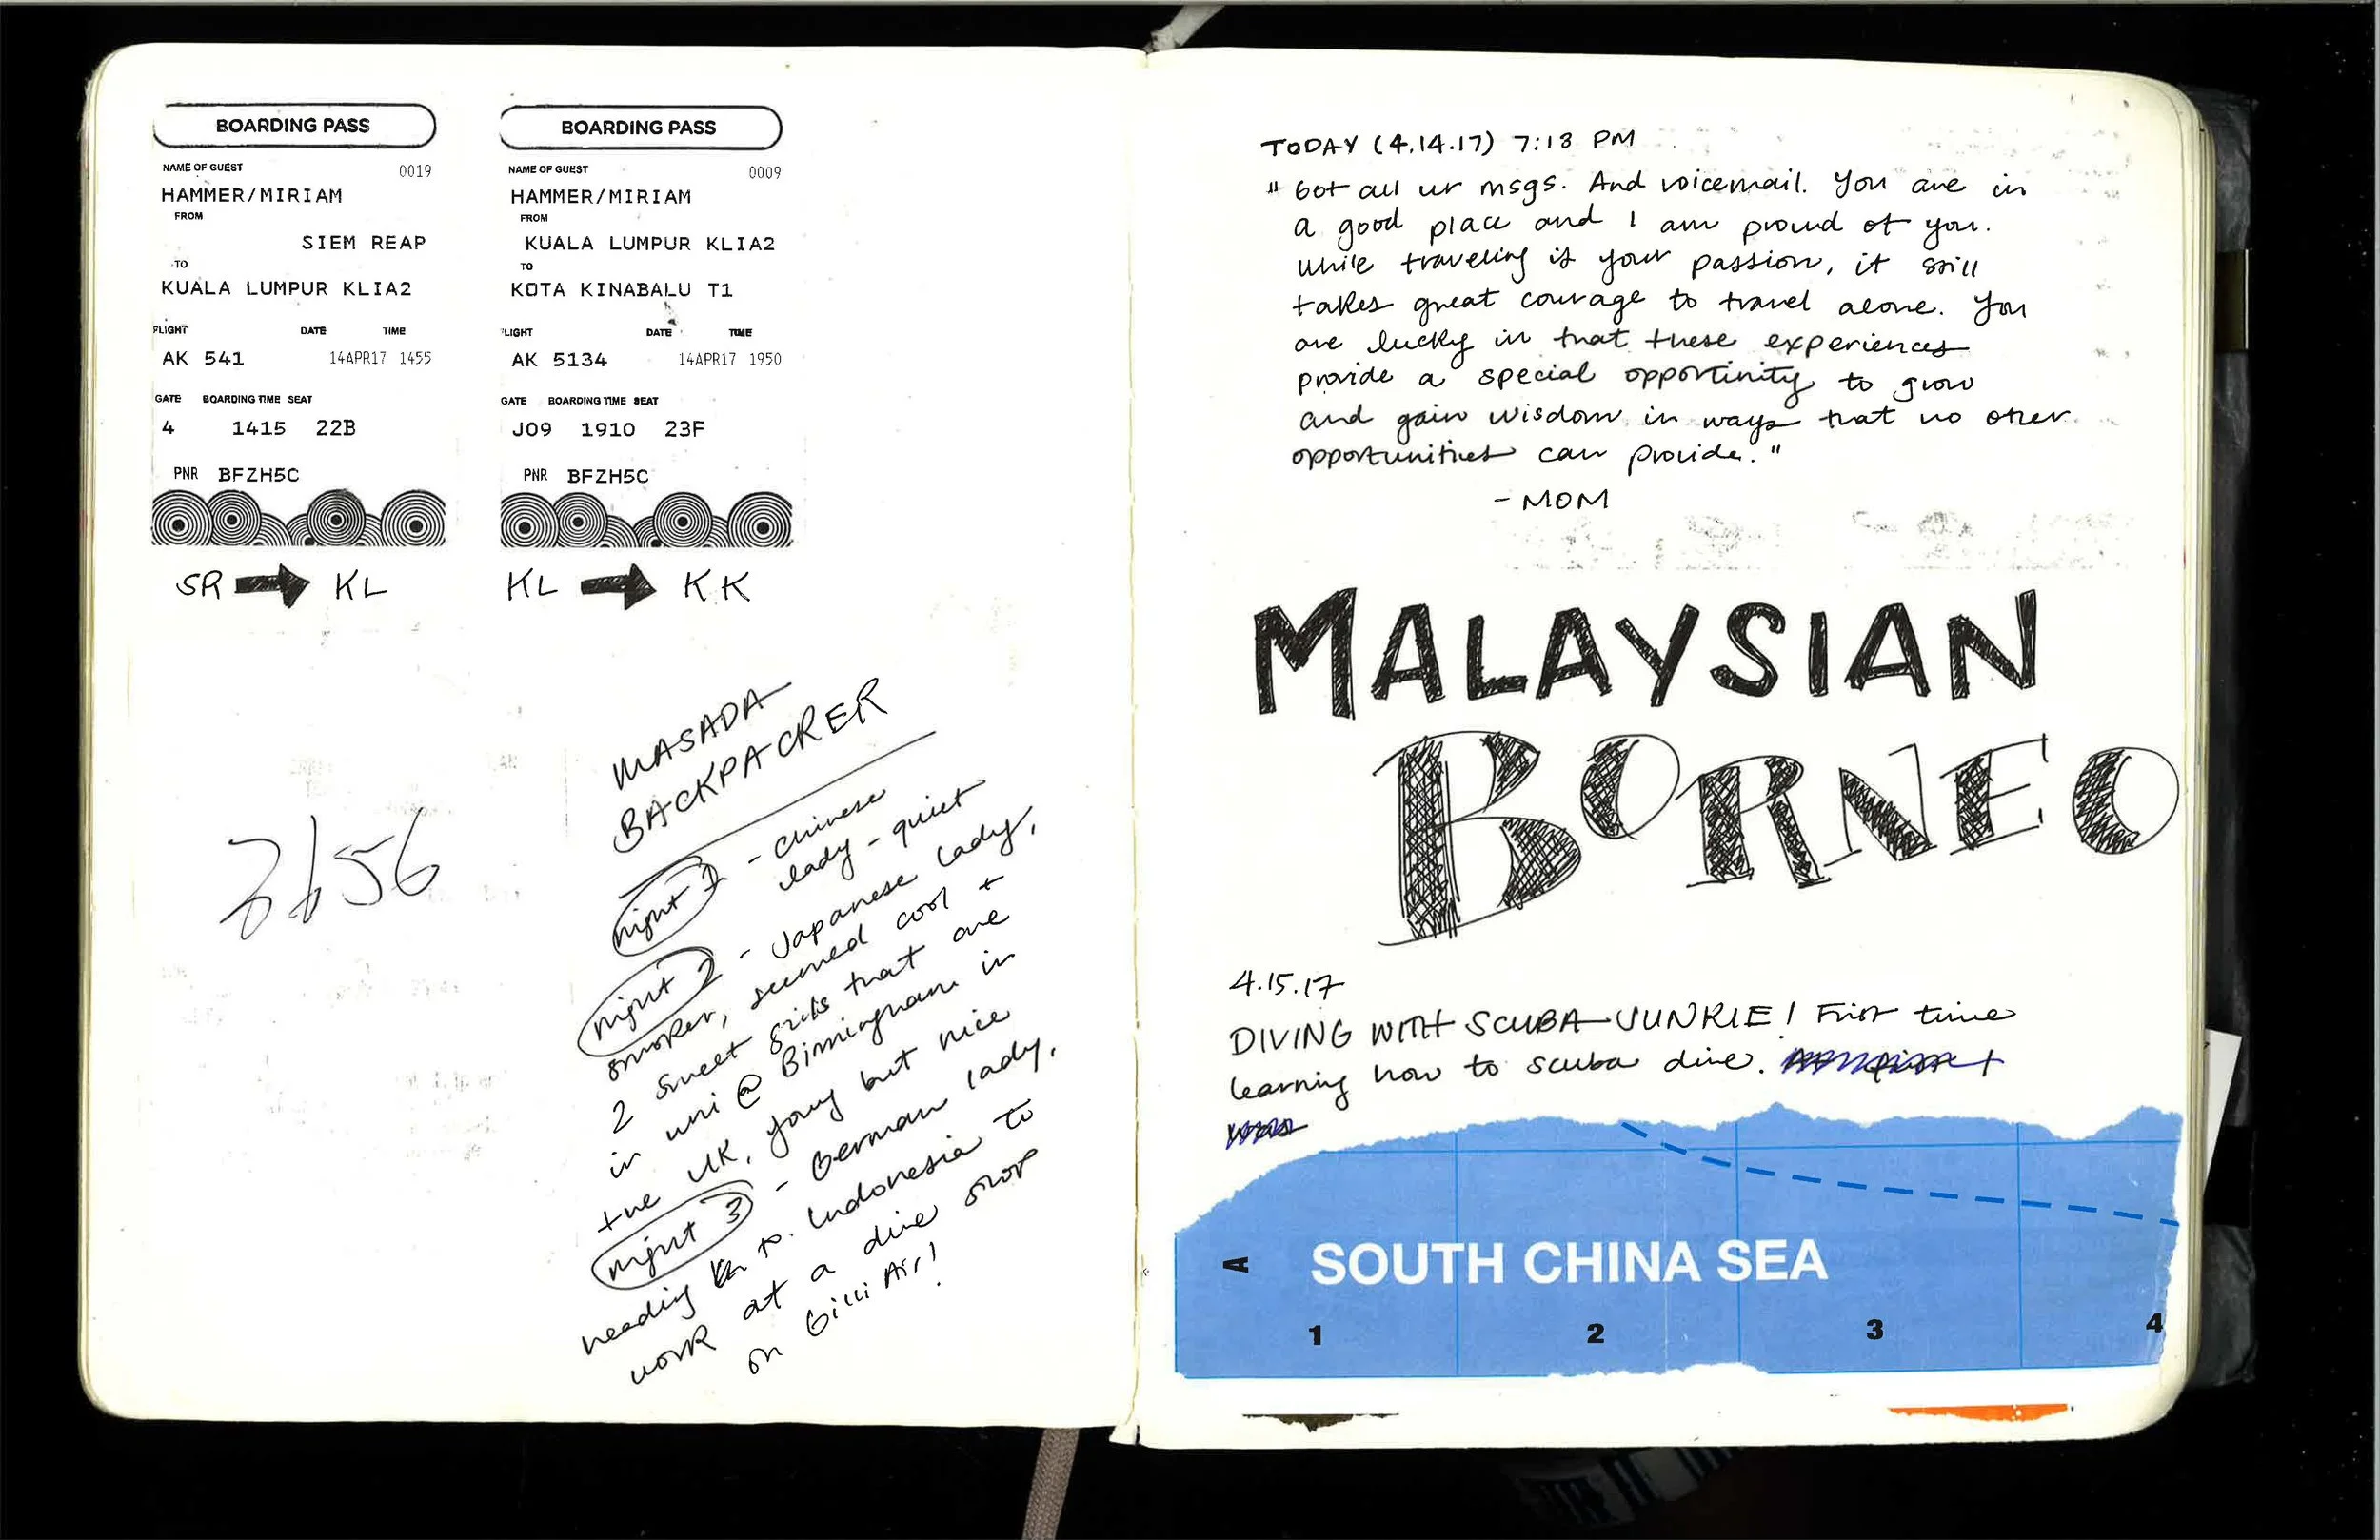 BOARDING PASS
NAME OF GUEST 0019
HAMMER/MIRIAM
FROM
SIEM REAP
TO
KUALA LUMPUR KLIA2
FLIGHT DATE TIME
AK 541 14APR17 1455
GATE BOARDING TIME SEAT
4 1415 22B
PNR BFZH5C
SR → KL
BOARDING PASS
NAME OF GUEST 0009
HAMMER/MIRIAM
FROM
KUALA LUMPUR KLIA2
TO
KOTA KINABALU T1
FLIGHT DATE TIME
AK 5134 14APR17 1950
GATE BOARDING TIME SEAT
J09 1910 23F
PNR BFZH5C
KL → KK
MASADA
BACKPACKER
night 1 - Chinese
lady - quiet
night 2 - Japanese lady,
smoker, seemed cool +
2 sweet girls that are
in uni @ Birmingham in
the UK, young but nice
night 3 - German lady,
heading to Indonesia to
work at a dive shop
on Gilli Air!
TODAY (4.14.17) 7:13 PM
"Got all ur msgs. And voicemail. You are in
a good place and I am proud of you.
While traveling is your passion, it still
takes great courage to travel alone. You
are lucky in that these experiences
provide a special opportinity to grow
and gain wisdom in ways that no other
opportunities can provide."
- MOM
MALAYSIAN
BORNEO
4.15.17
DIVING WITH SCUBA JUNKIE! First time
learning how to scuba dive.
was
A SOUTH CHINA SEA
1 2 3 4